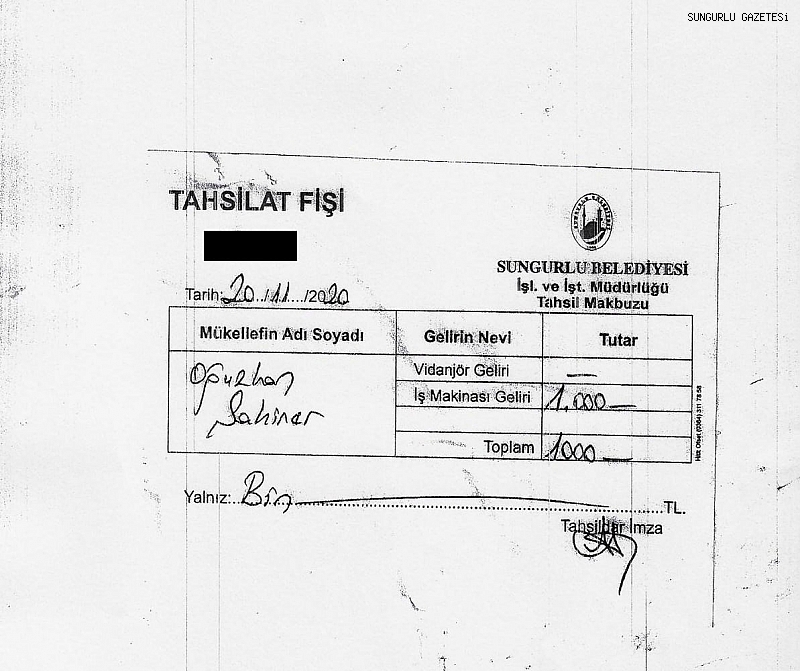 SUNGURLU GAZETESİ
TAHSİLAT FİŞİ
SUNGURLU BELEDİYESİ
İşl. ve İşt. Müdürlüğü
Tahsil Makbuzu
Tarih: 20../11.../2020
Mükellefin Adı Soyadı Gelirin Nevi Tutar
Oğuzhan
Şahiner
Vidanjör Geliri —
İş Makinası Geliri 1.000—
Toplam 1000—
Yalnız:..Bin..................TL.
Tahsildar İmza